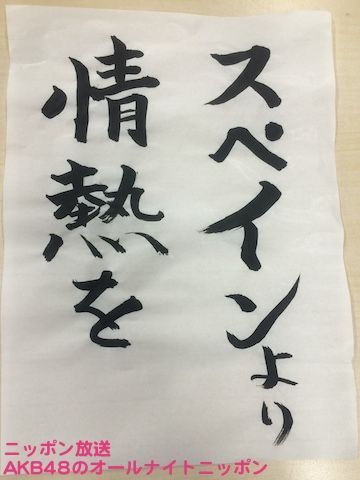 スペインより
情熱を
ニッポン放送
AKB48のオールナイトニッポン